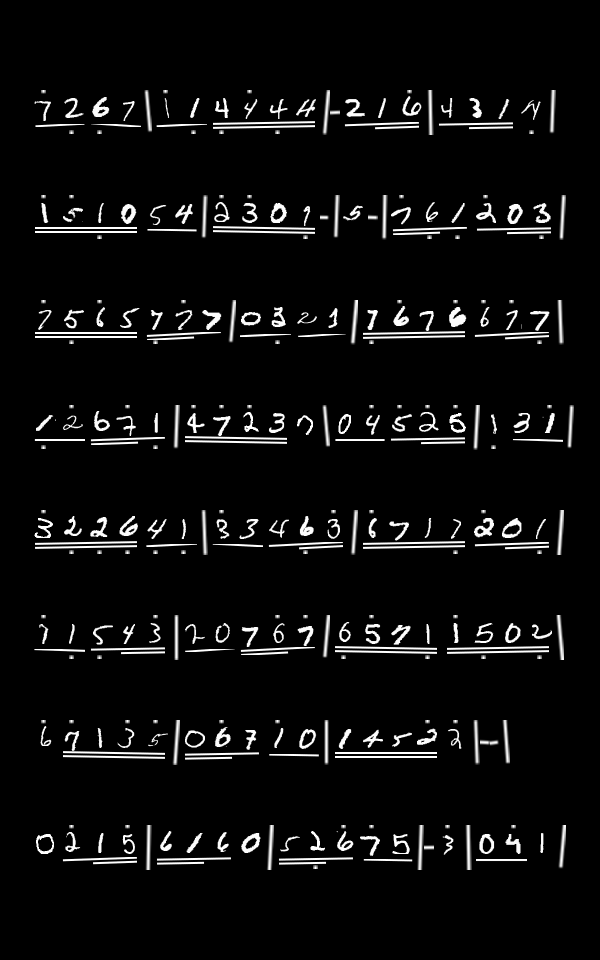 7 2 6 7 | 1 1 4 4 4 4 | - 2 1 6 | 4 3 1 4 |
1 5 1 0 5 4 | 2 3 0 1 - | 5 - | 7 6 1 2 0 3 |
7 5 6 5 7 7 7 | 0 3 2 1 | 7 6 7 6 6 7 7 |
1 2 6 7 1 | 4 7 2 3 7 | 0 4 5 2 5 | 1 3 1 |
3 2 2 6 4 1 | 3 3 4 6 3 | 6 7 1 7 2 0 1 |
7 1 5 4 3 | 2 0 7 6 7 | 6 5 7 1 1 5 0 2 |
6 7 1 3 5 | 0 6 7 1 0 | 1 4 5 2 2 | - - |
0 2 1 5 | 6 1 6 0 | 5 2 6 7 5 | - 3 | 0 4 1 |